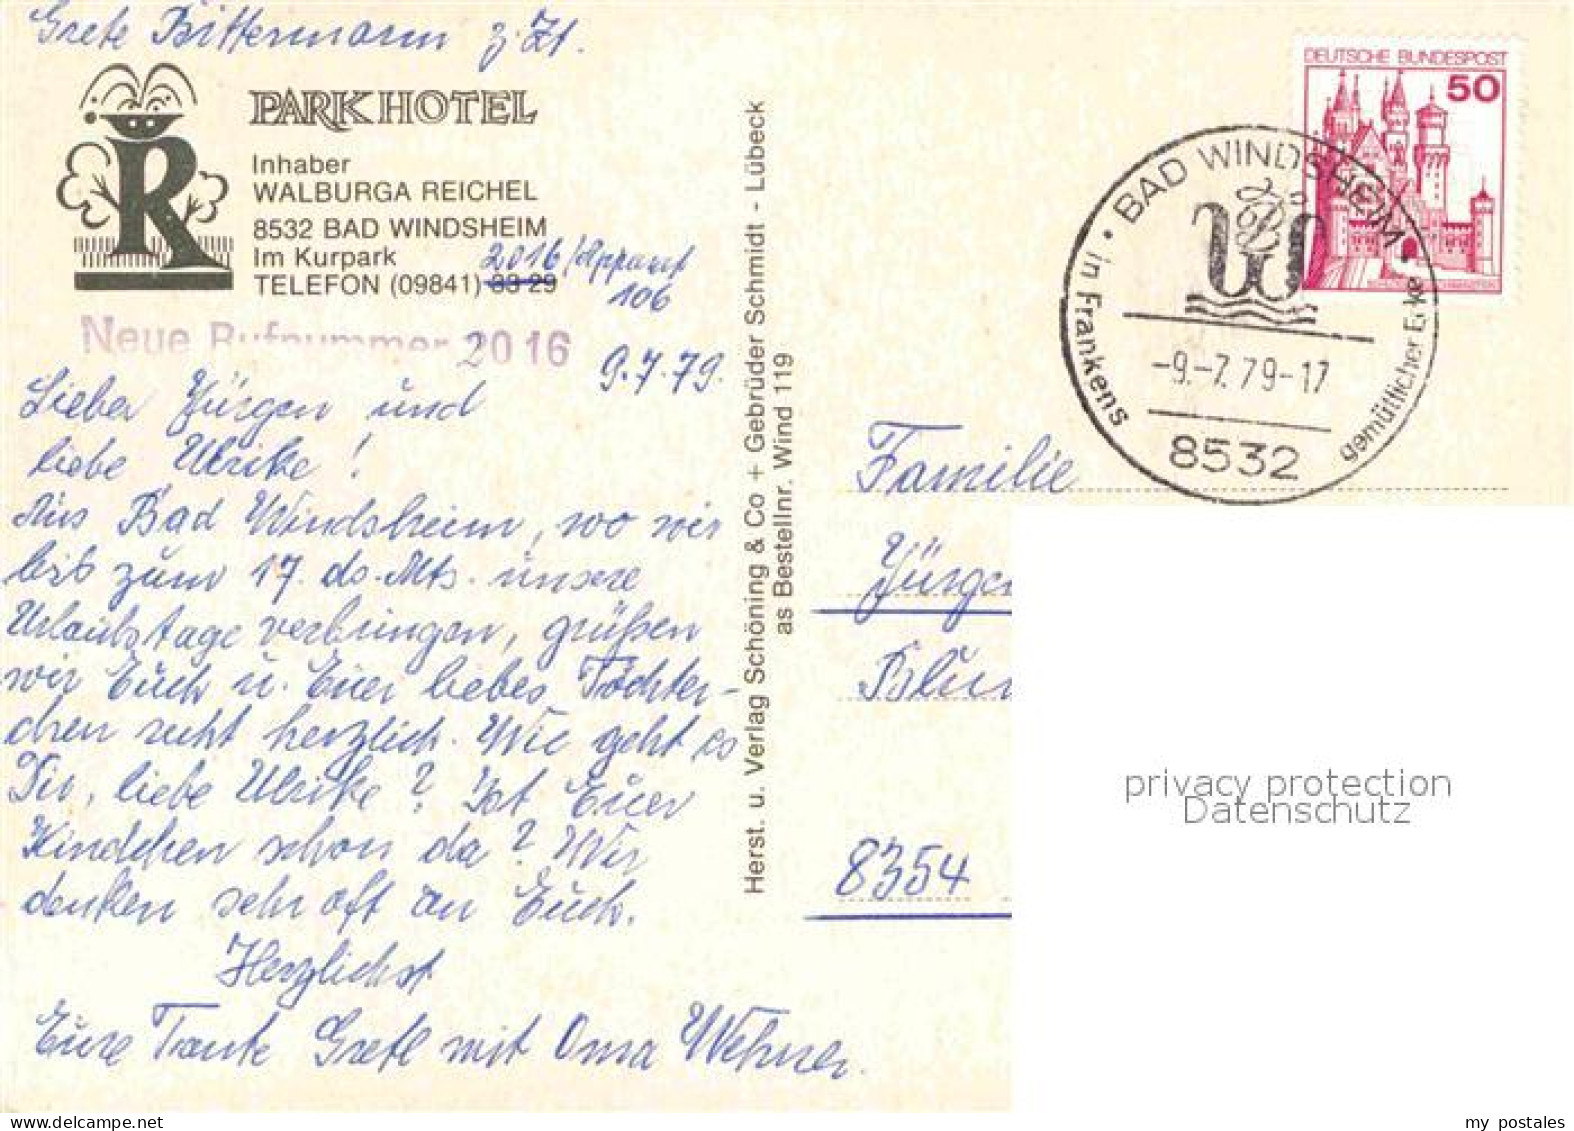 Grete Bittermann z. Zt.
PARKHOTEL
Inhaber
WALBURGA REICHEL
8532 BAD WINDSHEIM
Im Kurpark
TELEFON (09841) 33 29
2016/Apparat
106
Neue Rufnummer 2016
9.7.79.
Lieber Jürgen und
liebe Ulrike!
Aus Bad Windsheim, wo wir
bis zum 17. ds. Mts. unsere
Urlaubstage verbringen, grüßen
wir Euch u. Euer liebes Töchter-
chen recht herzlich. Wie geht es
Dir, liebe Ulrike? Ist Euer
Kindchen schon da? Wir
denken sehr oft an Euch.
Herzlichst
Eure Tante Gretl mit Oma Wehner.
Herst. u. Verlag Schöning & Co + Gebrüder Schmidt - Lübeck
as Bestellnr. Wind 119
DEUTSCHE BUNDESPOST
50
• BAD WINDSHEIM •
in Frankens
gemütlicher Ecke
-9.-7.79-17
8532
Familie
Jürgen
8354
privacy protection
Datenschutz
my postales